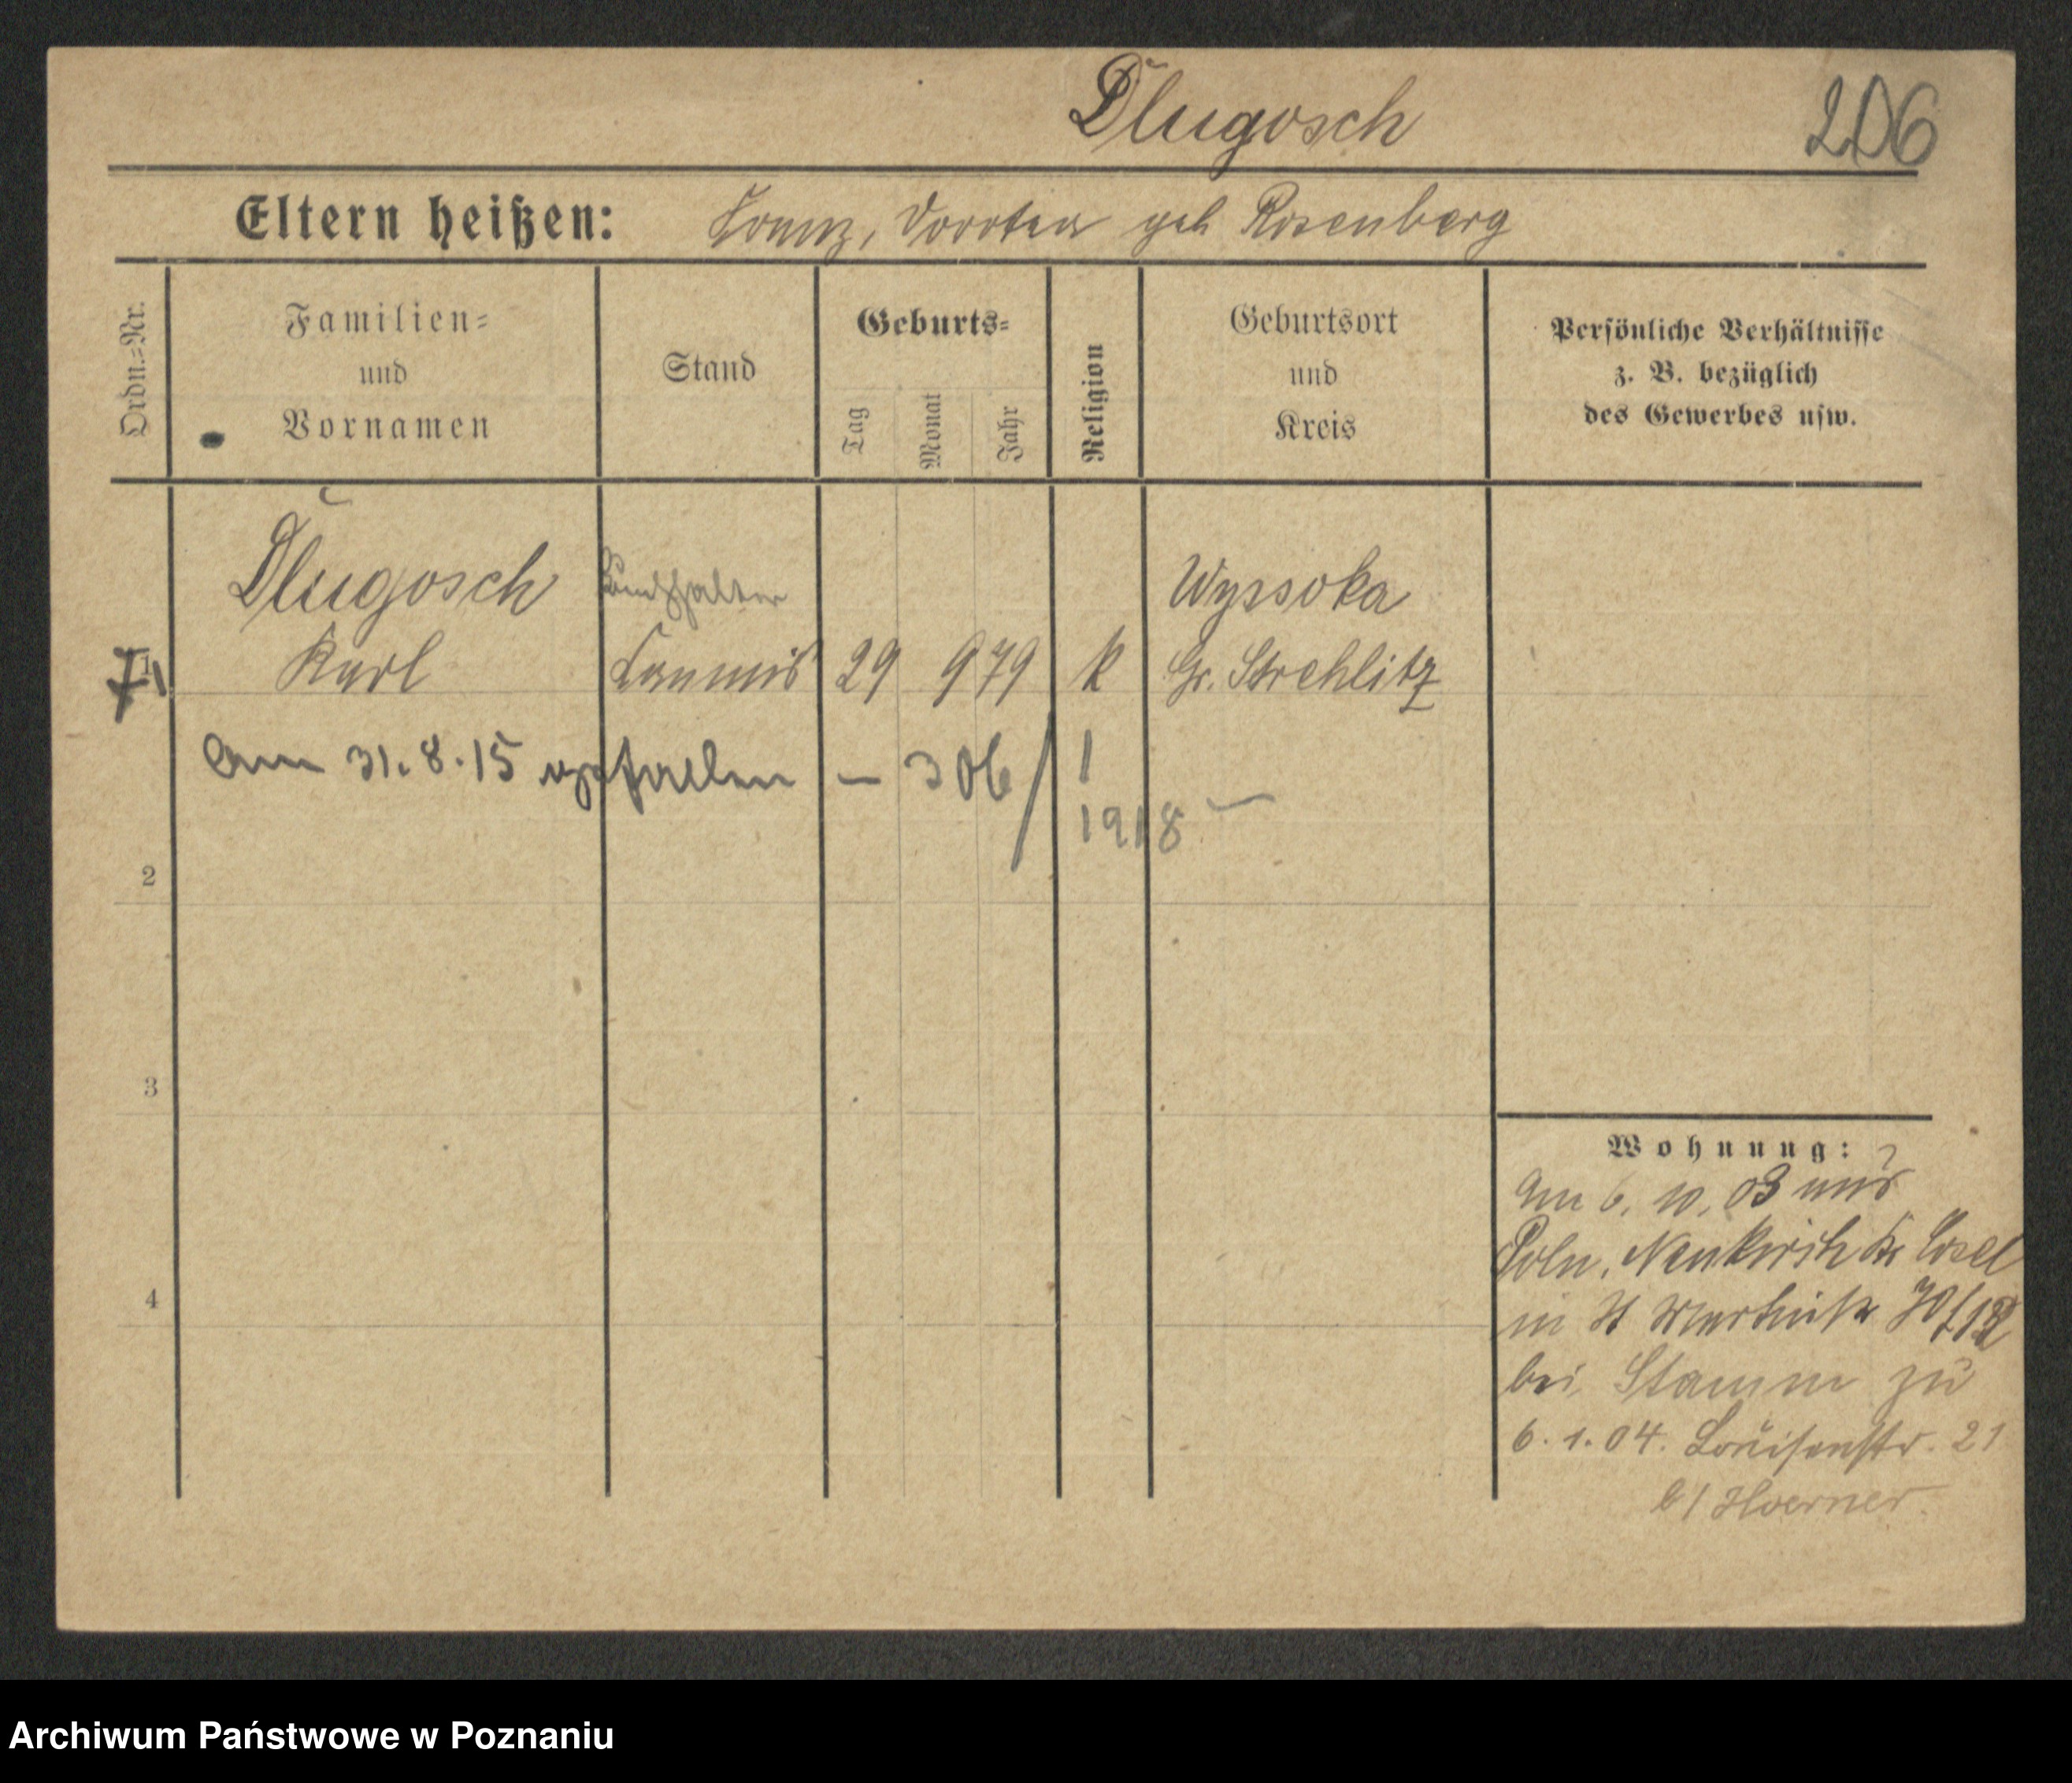 Dlugosch 206
Eltern heißen: Franz, Dorotea geb Rosenberg
Ordn.=Nr.
Familien=
und
Vornamen
Stand
Geburts=
Tag
Monat
Jahr
Religion
Geburtsort
und
Kreis
Persönliche Verhältnisse
z. B. bezüglich
des Gewerbes usw.
Dlŭgosch Buchhalter Wyssoka
1 Karl Commis 29 9 79 k Gr. Strehlitz
am 31.8.15 gefallen – 306 / 1
1918
2
3
4
Wohnung:
am 6. 10. 03 aus
Poln. Neukirch Kr Cosel
in St Martinstr 70/
bei Stamm zu
6.1.04. Louisenstr. 21
b/ Hoerner.
Archiwum Państwowe w Poznaniu